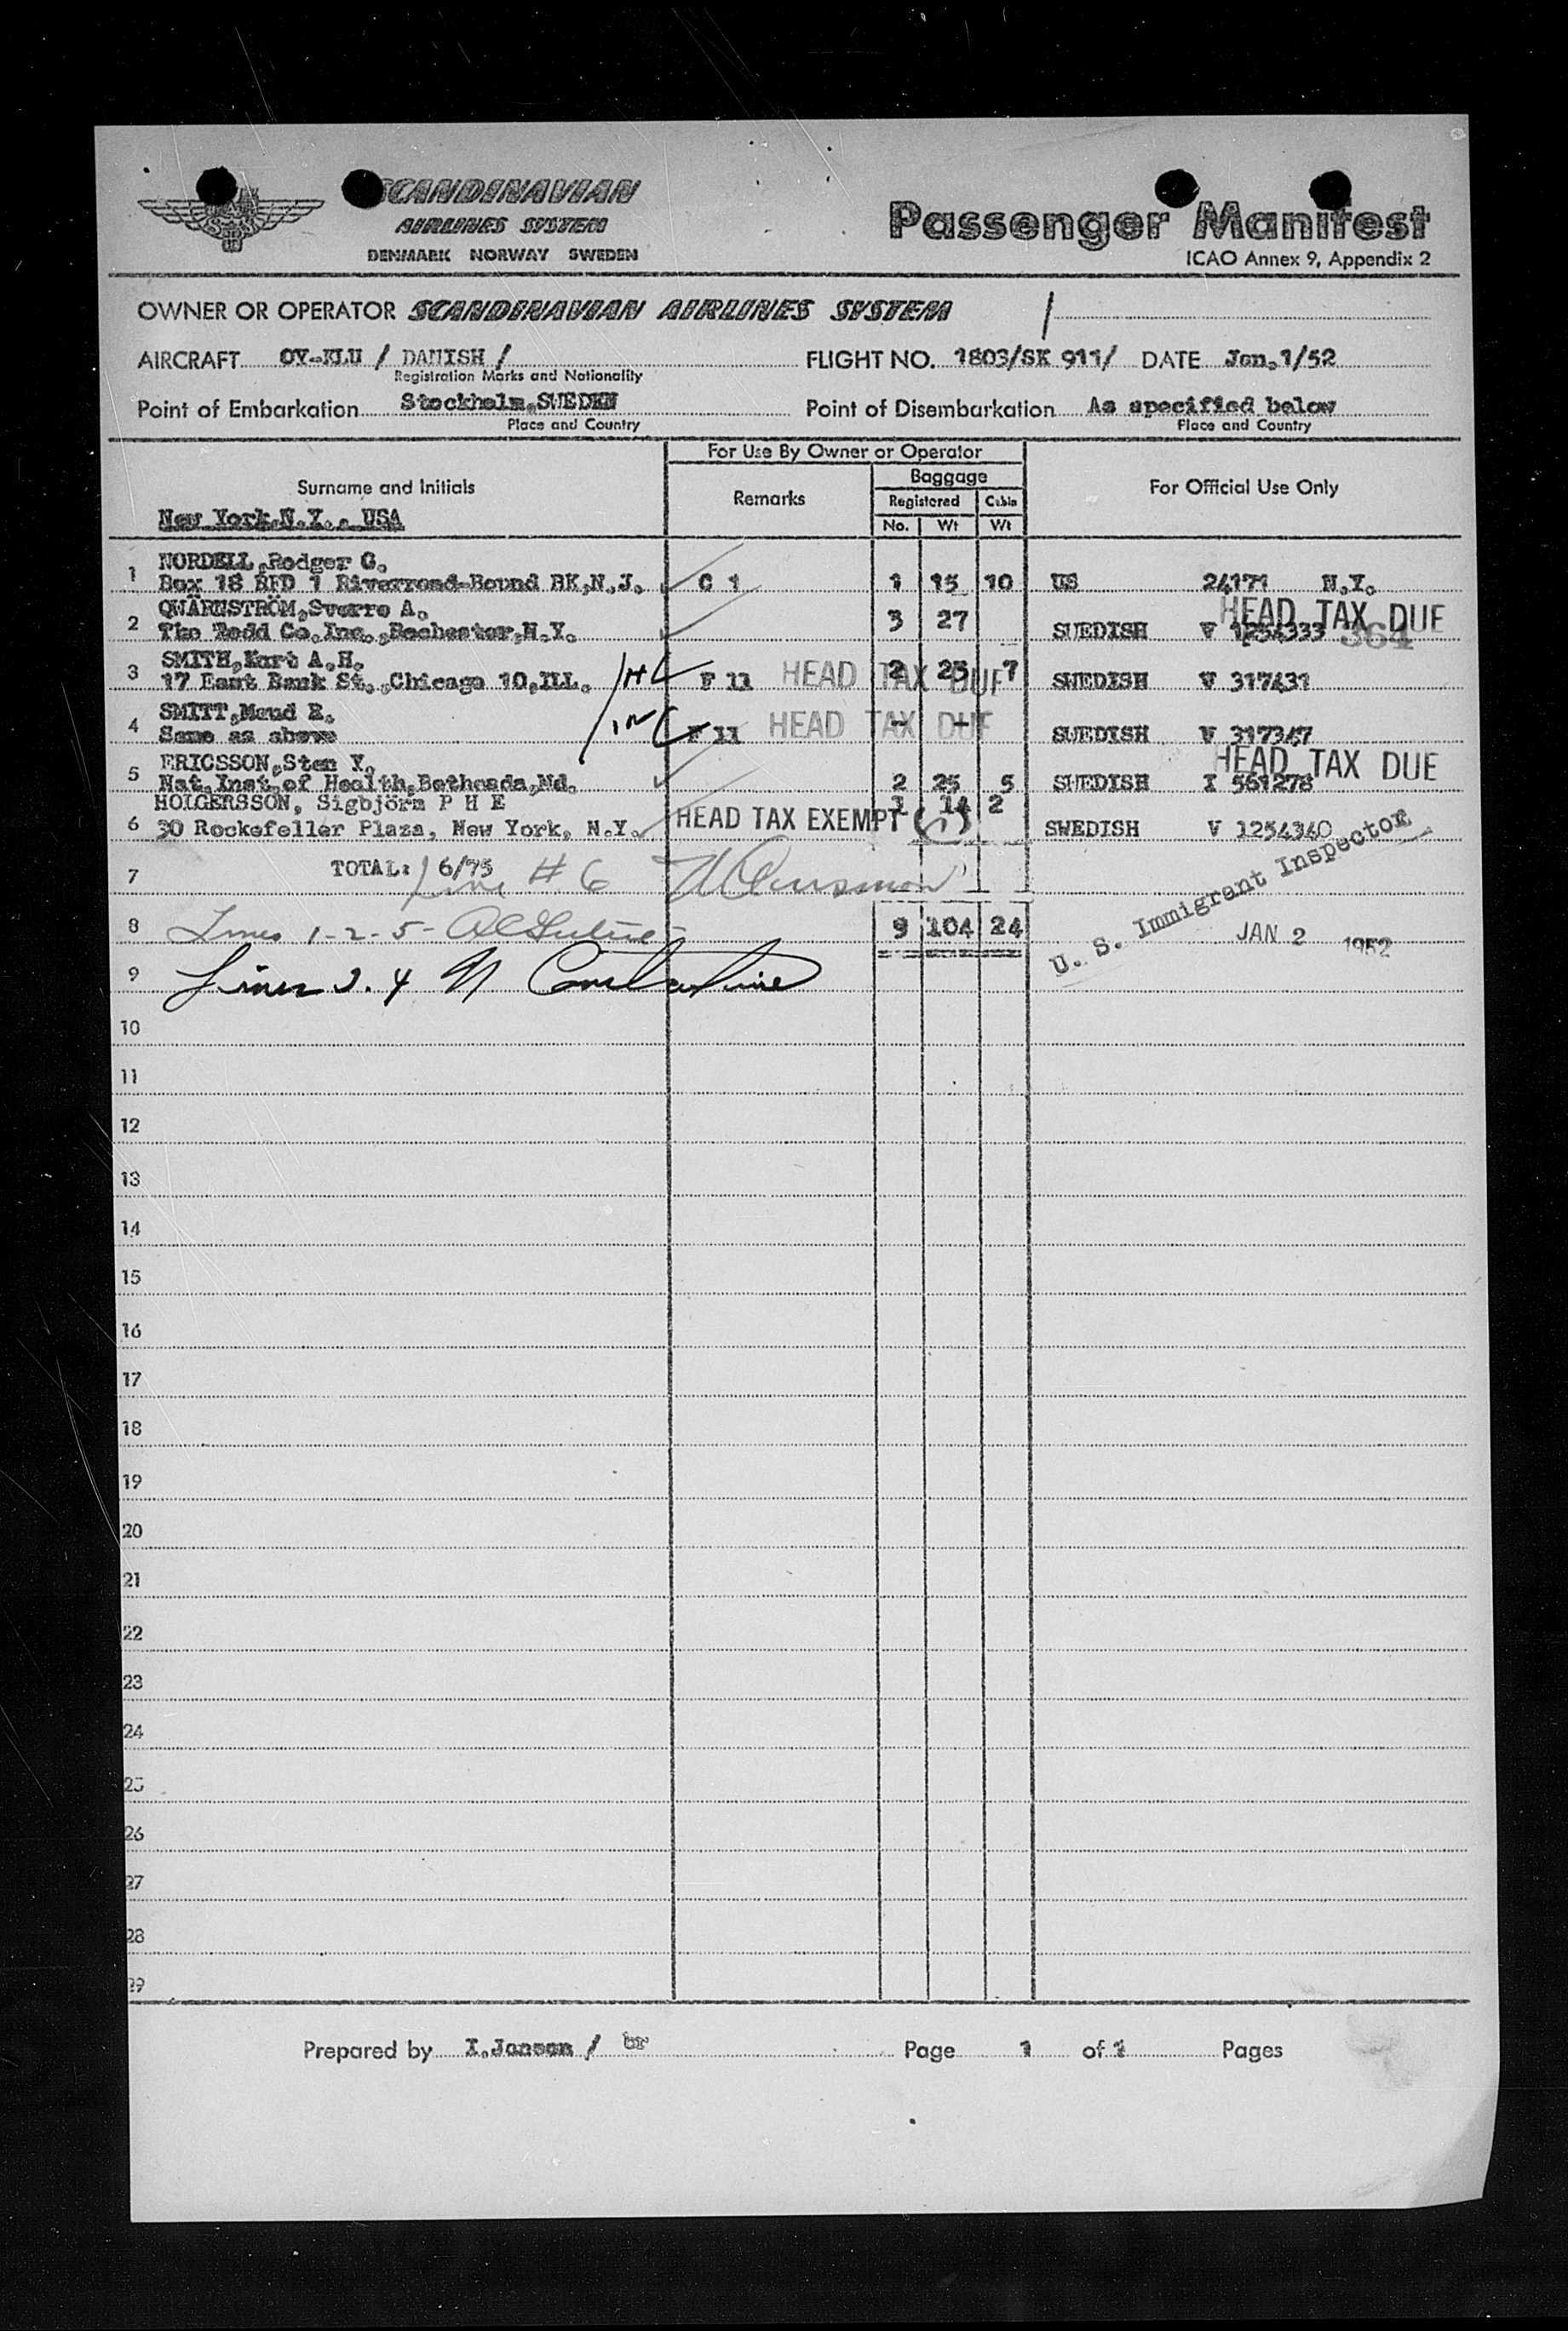 SCANDINAVIAN
AIRLINES SYSTEM
DENMARK NORWAY SWEDEN
Passenger Manifest
ICAO Annex 9, Appendix 2
OWNER OR OPERATOR SCANDINAVIAN AIRLINES SYSTEM
AIRCRAFT OY-KLU / DANISH / FLIGHT NO. 1803/SK 911/ DATE Jan.1/52
Registration Marks and Nationality
Point of Embarkation Stockholm,SWEDEN Point of Disembarkation As specified below
Place and Country Place and Country
For Use By Owner or Operator
Surname and Initials Remarks Baggage For Official Use Only
Registered Cabin
New York,N.Y., USA No. Wt Wt
1 NORDELL,Rodger G.
Box 18 RFD 1 Riverroad-Bound BK,N.J. C 1 1 15 10 US 24171 N.Y.
2 QWÄRNSTRÖM,Sverre A. 3 27 HEAD TAX DUE
Co.Inc.,Rochester,N.Y. SWEDISH V 1254333 364
3 SMITH,Kurt A.H.
17 East Bank St.,Chicago 10,ILL. F 11 HEAD TAX DUE 2 23 7 SWEDISH V 317431
4 SMITT,Maud E.
Same as above F 11 HEAD TAX DUE - - SWEDISH V 317347
5 ERICSSON,Sten Y. HEAD TAX DUE
Nat.Inst.of Health,Bethesda,Md. 2 25 5 SWEDISH I 561278
6 HOLGERSSON, Sigbjörn P H E 1 14 2
30 Rockefeller Plaza, New York, N.Y. HEAD TAX EXEMPT SWEDISH V 1254340
7 TOTAL: 6/75 Line # 6
8 Lines 1-2-5- 9 104 24 U. S. Immigrant Inspector
JAN 2 1952
9 Lines 3. 4
10
11
12
13
14
15
16
17
18
19
20
21
22
23
24
25
26
27
28
29
Prepared by I.Janson / br Page 1 of 1 Pages